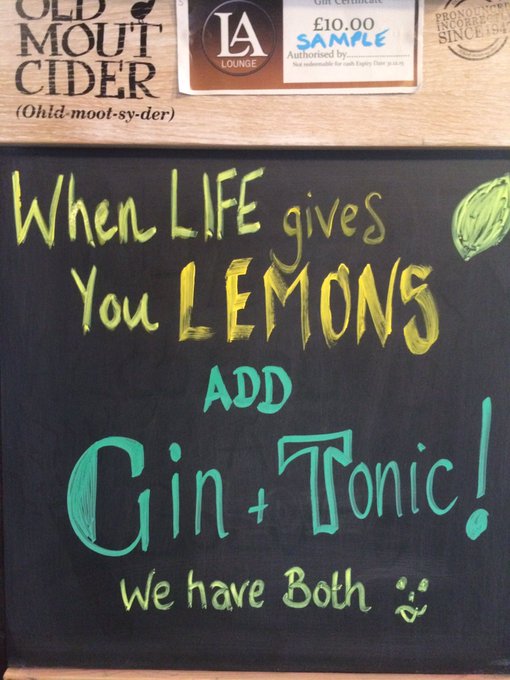 OLD
MOUT
CIDER
(Ohld-moot-sy-der)
LA
LOUNGE
Gift Certificate
£10.00
SAMPLE
Authorised by
Not redeemable for cash Expiry Date 31.12.15
PRONOUNCED
INCORRECTLY
SINCE 1947
When LIFE gives
You LEMONS
ADD
Gin + Tonic!
We have Both